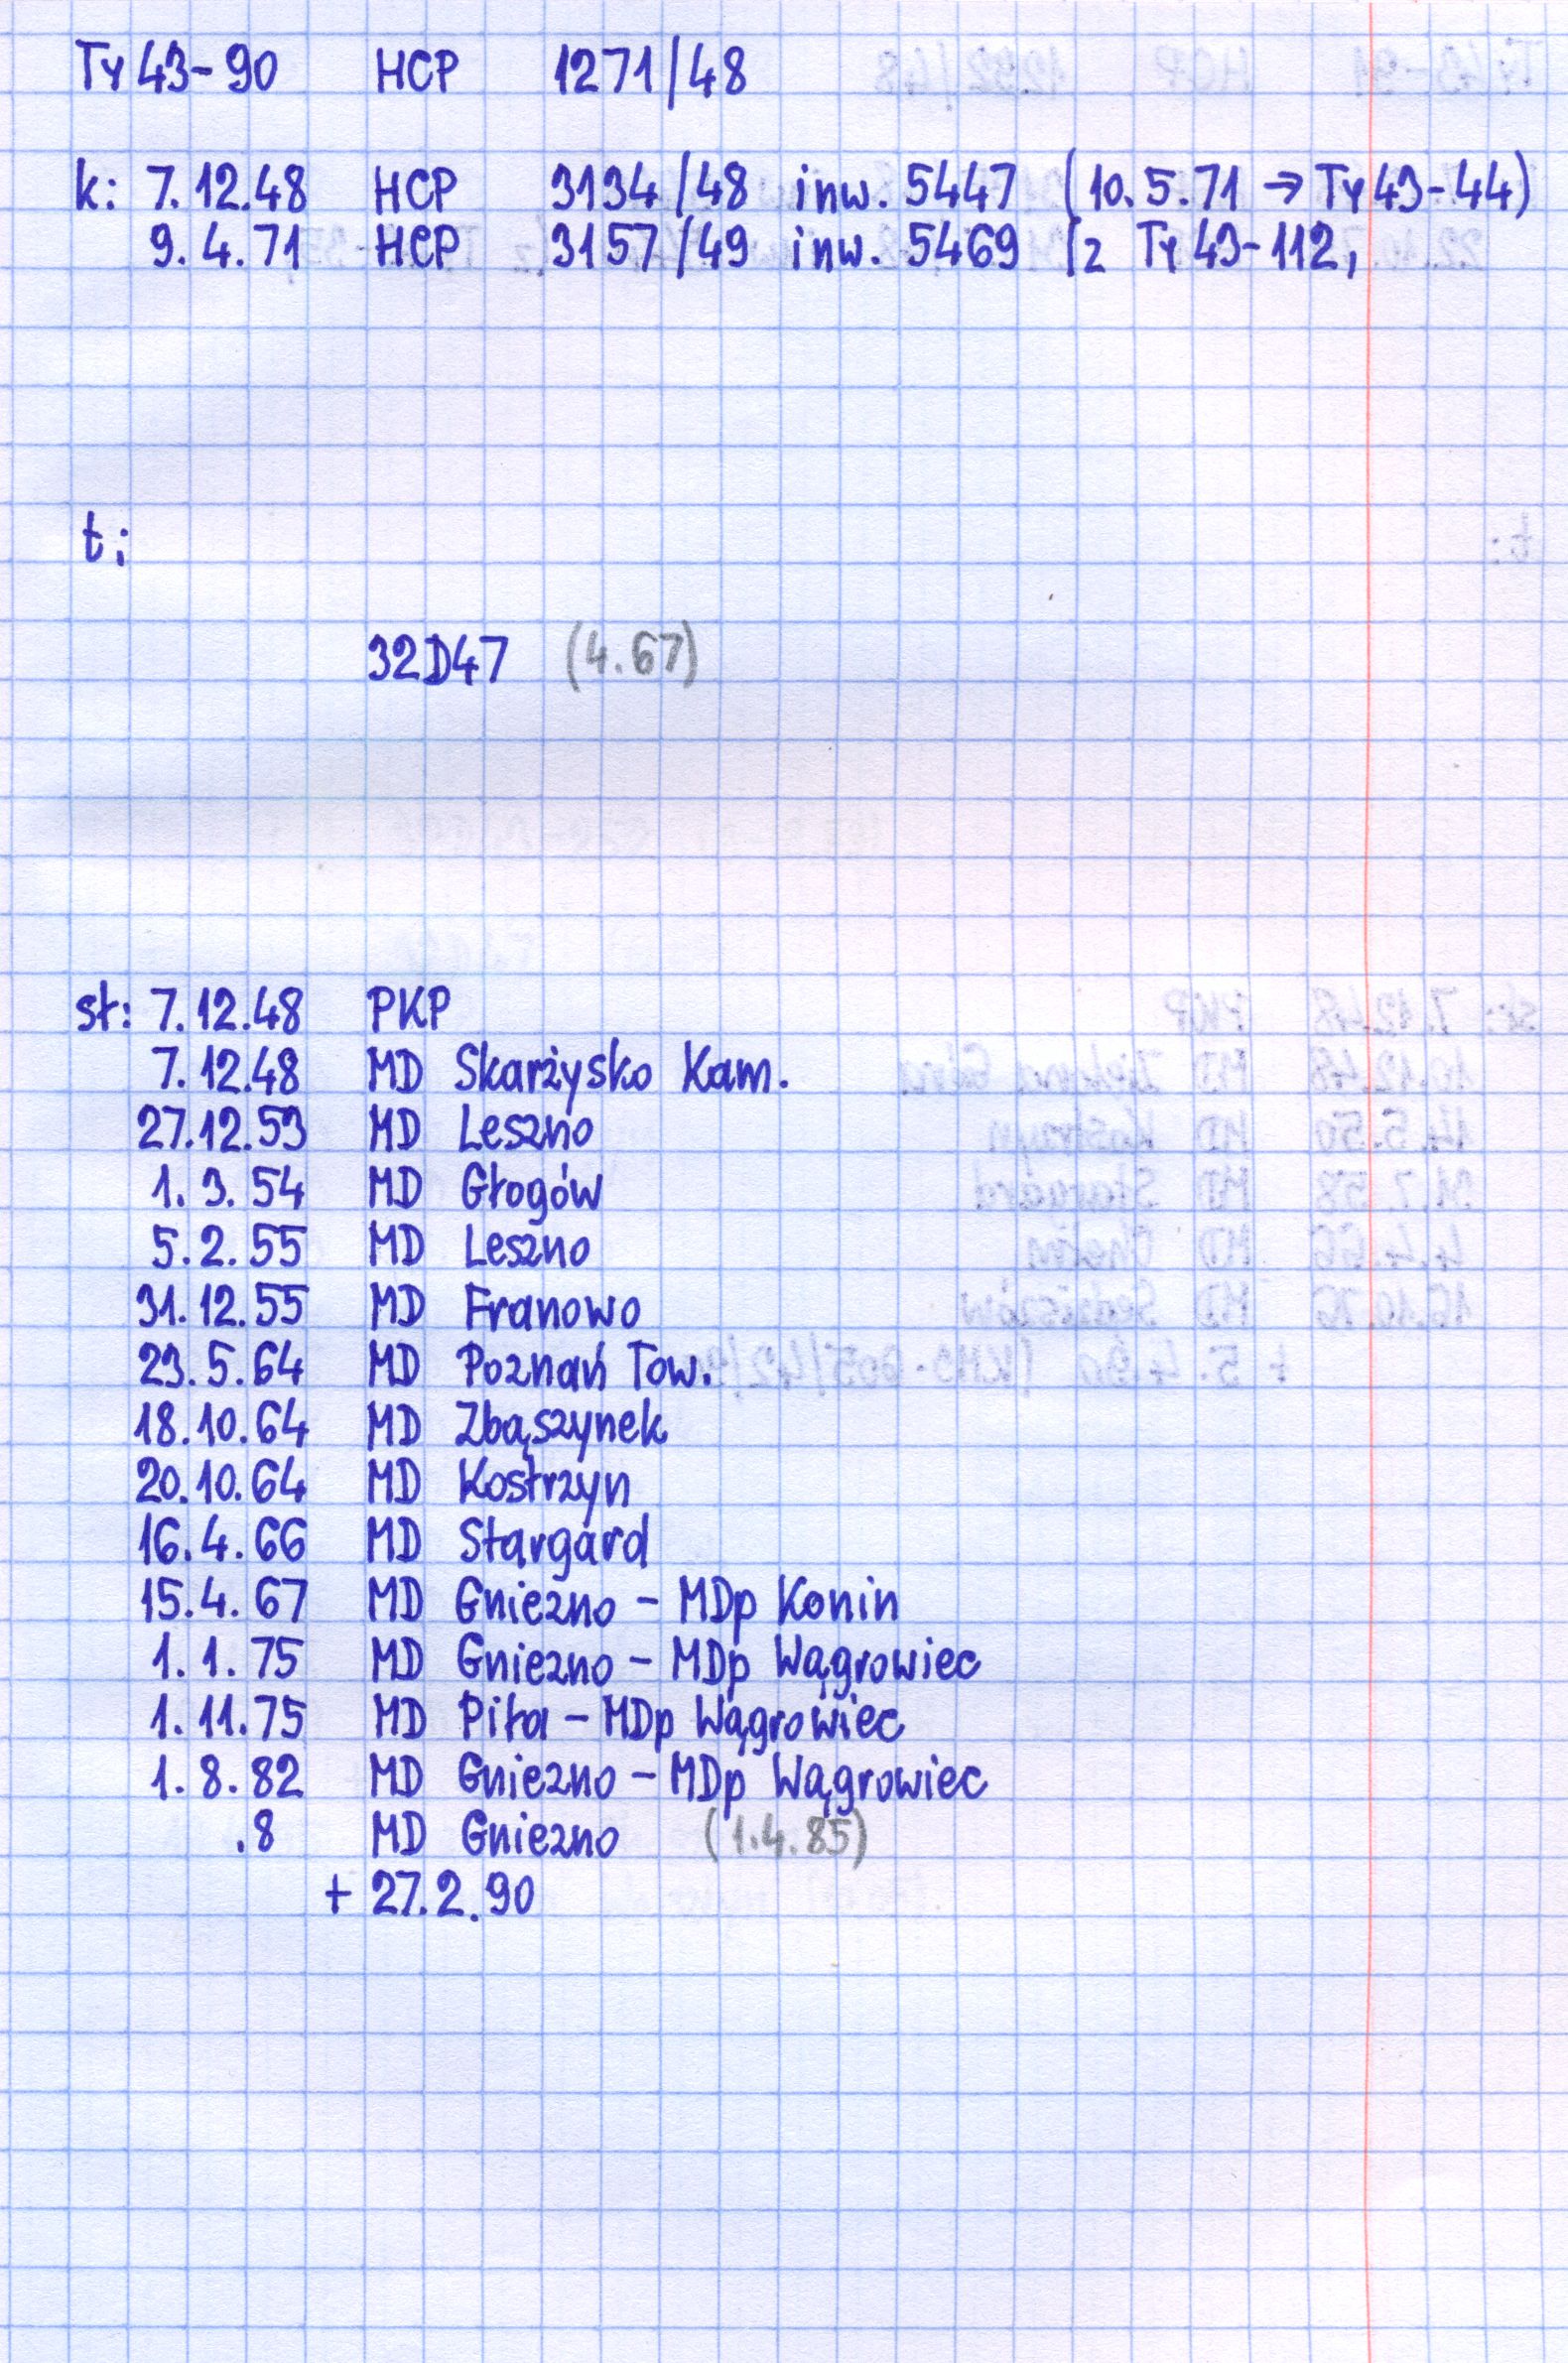 Ty43-90 HCP 1271/48
k: 7.12.48 HCP 3134/48 inw. 5447 (10.5.71 → Ty43-44)
9.4.71 HCP 3157/49 inw. 5469 (z Ty43-112,
t:
32D47 (4.67)
st: 7.12.48 PKP
7.12.48 MD Skarżysko Kam.
27.12.53 MD Leszno
1.3.54 MD Głogów
5.2.55 MD Leszno
31.12.55 MD Franowo
23.5.64 MD Poznań Tow.
18.10.64 MD Zbąszynek
20.10.64 MD Kostrzyn
16.4.66 MD Stargard
15.4.67 MD Gniezno - MDp Konin
1.1.75 MD Gniezno - MDp Wągrowiec
1.11.75 MD Piła - MDp Wągrowiec
1.8.82 MD Gniezno - MDp Wągrowiec
.8 MD Gniezno (1.4.85)
+ 27.2.90